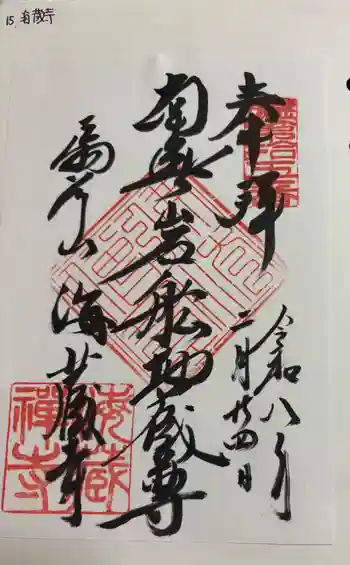 15. 海蔵寺
奉拝
令和八年
二月廿四日
南無岩船地蔵尊
扇谷山 海蔵寺
海蔵禅寺